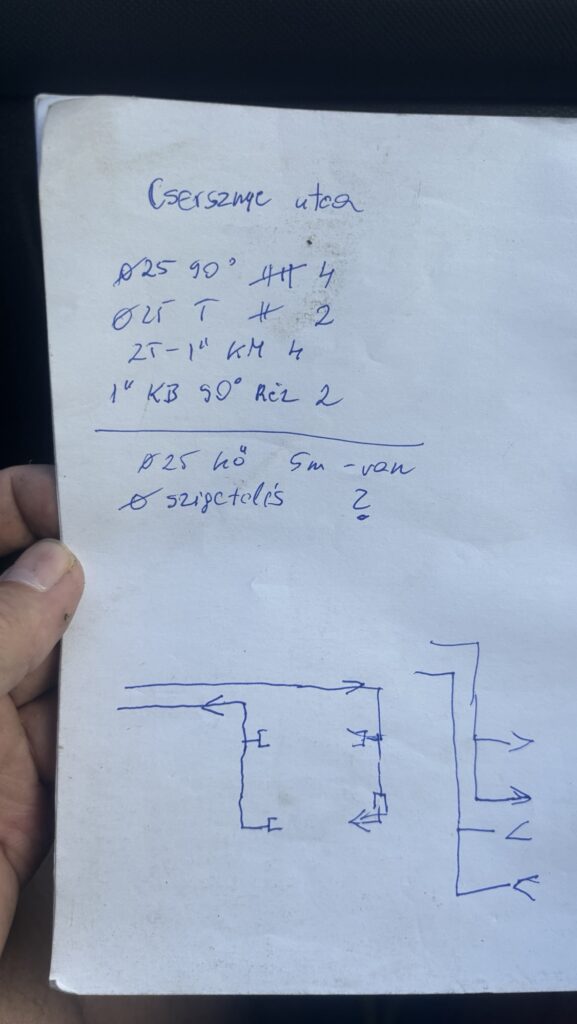 Csersznye utca
Ø25 90° 4
Ø25 T 2
25-1" KM 4
1" KB 90° Réz 2
Ø25 5m - van
Ø szigetelés ?